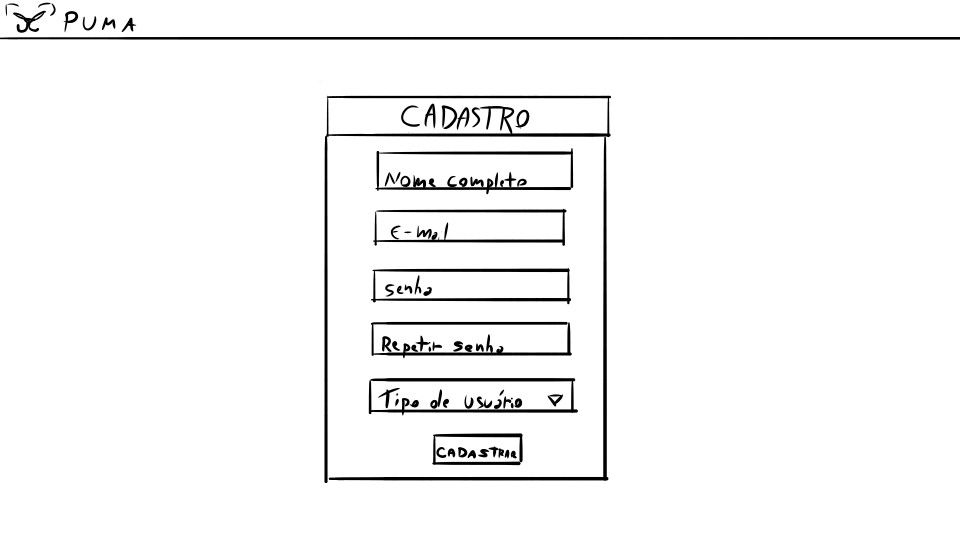 PUMA
CADASTRO
Nome completo
E-mail
senha
Repetir senha
Tipo de usuário
CADASTRAR